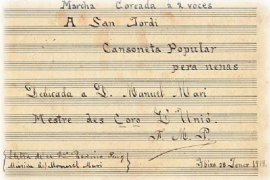 Marcha Coreada a 2 voces
A San Jordi
Cansoneta Popular
pera nenas
Dedicada a D. Manuel Mari
Mestre des Coro L'Unió
F. M. P.
Lletra de
Música d' Manuel Mari
Ibiza 28 Janer 1919